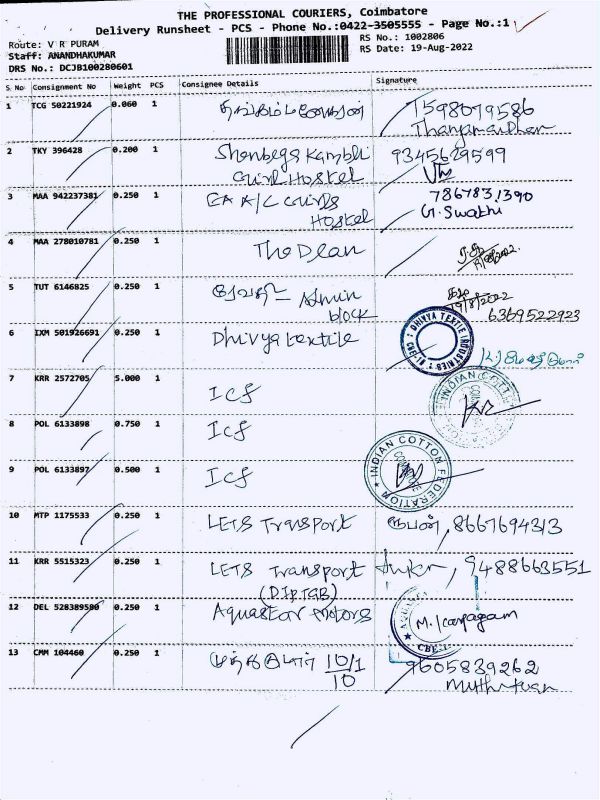 THE PROFESSIONAL COURIERS, Coimbatore
Delivery Runsheet - PCS - Phone No.:0422-3505555 - Page No.:1
Route: V R PURAM
RS No.: 1002806
Staff: ANANDHAKUMAR
RS Date: 19-Aug-2022
DRS No.: DCJB100280601
S. No Consignment No Weight PCS Consignee Details Signature
1 TCG 50221924 0.060 1 7598079586
2 TKY 396428 0.200 1 Shenbega 9345629599
Girl Hostel
3 MAA 942237381 0.250 1 EA A/C Girls 7867831390
Hostel G. Swathi
4 MAA 278010781 0.250 1 The Dean
5 TUT 6146825 0.250 1 Admin 19/8/2022
block 6369522923
6 IXM 501926691 0.250 1 Dhivya textile DHIVYA TEXTILE INDUSTRIES
7 KRR 2572705 5.000 1 ICF INDIAN COTTON
8 POL 6133898 0.750 1 ICF
9 POL 6133897 0.500 1 ICF INDIAN COTTON FEDERATION
10 MTP 1175533 0.250 1 LETS Transport ரூபன், 8667694313
11 KRR 5515323 0.250 1 LETS Transport , 9488663551
12 DEL 528389580 0.250 1 Aquastar Motors M. Karpagam
13 CMM 104460 0.250 1 10/1 9605839262
10